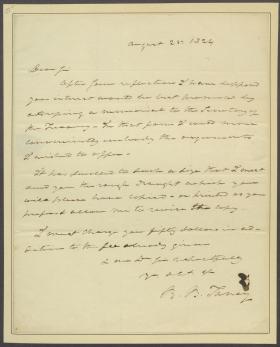 August 21. 1824
Dear Sir
After some reflection I have supposed
your interest would be best promoted by
addressing a memorial to the Secretary of
the Treasury. In that form I could more
conveniently embody the arguments
I wished to offer.
It has swelled to such a size that I must
send you the rough draught which you
will please have copied - or printed as you
prefer & allow me to revise the copy
I must charge you fifty dollars in ad-
dition to the fee already given
I am Dr Sir respectfully
yr obt st
R. B. Taney